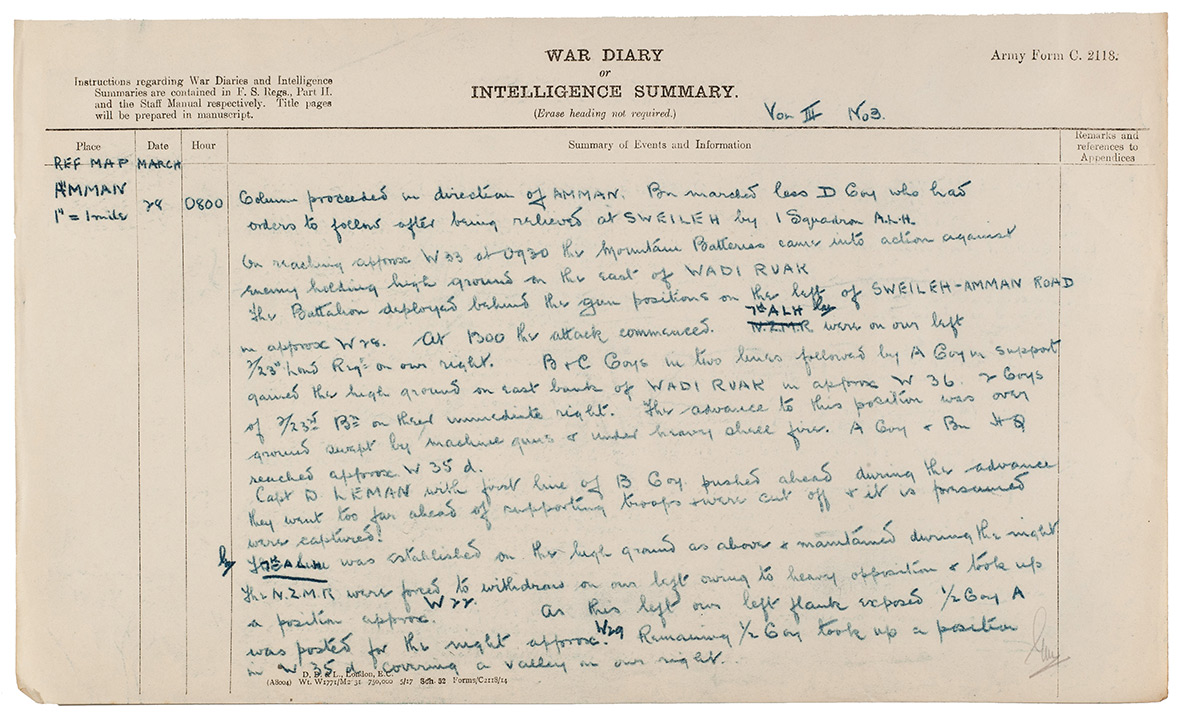 WAR DIARY
or
INTELLIGENCE SUMMARY.
(Erase heading not required.)
Army Form C. 2118.
Instructions regarding War Diaries and Intelligence
Summaries are contained in F. S. Regs., Part II.
and the Staff Manual respectively. Title pages
will be prepared in manuscript.
Vol III No 3.
Place Date Hour Summary of Events and Information Remarks and
references to
Appendices
REF MAP MARCH
AMMAN
1" = 1 mile 28 0800 Column proceeded in direction of AMMAN. Bn marched less D Coy who had
orders to follow after being relieved at SWEILEH by 1 Squadron A.L.H.
On reaching approx W 33 at 0930 the Mountain Batteries came into action against
enemy holding high ground on the east of WADI RUAK
The Battalion deployed behind the gun positions on the left of SWEILEH-AMMAN ROAD
in approx W28. At 1300 the attack commenced. 7th ALH N.Z.M.R were on our left
2/23rd Lond Regt on our right. B & C Coys in two lines followed by A Coy in support
gained the high ground on east bank of WADI RUAK in approx W 36. 2 Coys
of 2/23rd Bn on their immediate right. The advance to this position was over
ground swept by machine guns & under heavy shell fire. A Coy & Bn HQ
reached approx W 35 d.
Capt D. LEMAN with first line of B Coy pushed ahead during the advance
they went too far ahead of supporting troops & were cut off & it is presumed
were captured.
was established on the high ground as above & maintained during the night
The N.Z.M.R were forced to withdraw on our left owing to heavy opposition & took up
a position approx. W22. As this left our left flank exposed 1/2 Coy A
was posted for the night approx. W29 Remaining 1/2 Coy took up a position
in W 35 d covering a valley on our right.
D. D. & L., London, E.C.
(A8004) Wt. W1771/M2 31 750,000 5/17 Sch. 52 Forms/C2118/14